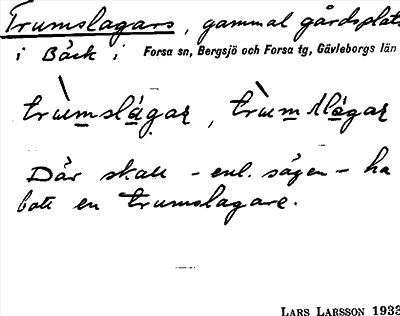 Trumslagars, gammal gårdsplats
i Bäck i Forsa sn, Bergsjö och Forsa tg, Gävleborgs län
Där skall – enl. sägen – ha
bott en trumslagare.
LARS LARSSON 1933